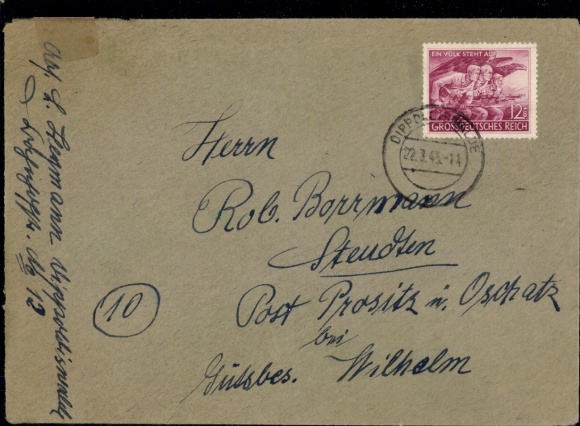 EIN VOLK STEHT AUF
12+8
GROSSDEUTSCHES REICH
22.3.45.-11
Herrn
Rob. Borrmann
Steudten
Post Prositz ü. Oschatz
bei
Gutsbes. Wilhelm
10
Abs.
13